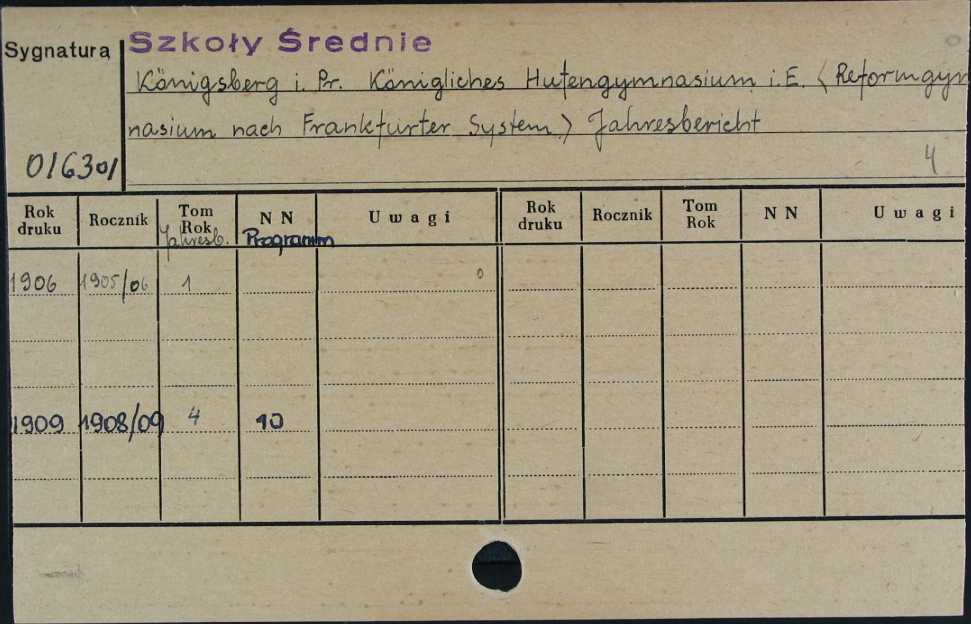 Szkoły Średnie
Sygnatura
Königsberg i. Pr. Königliches Hufengymnasium i.E. (Reformgym
nasium nach Frankfurter System) Jahresbericht
016301
4
Rok druku Rocznik Tom Rok N N Uwagi Rok druku Rocznik Tom Rok N N Uwagi
Jahresb. Programm
1906 1905/06 1 0
1909 1908/09 4 10